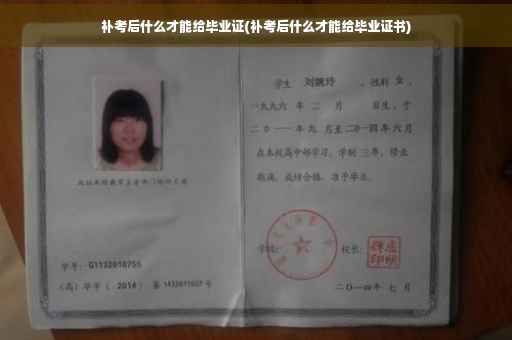 补考后什么才能给毕业证(补考后什么才能给毕业证书)
学生 刘婉玲 ，性别 女 ，
一九九六 年 二 月 日生，于
二〇一一 年 九 月至 二〇一四 年 六 月
在本校高中部学习，学制 三 年，修业
期满，成绩合格，准予毕业。
学号：G1132010755
(高) 毕字 ( 2014 ) 第 1432011027 号
学校：
校长：
二〇一四年 七 月